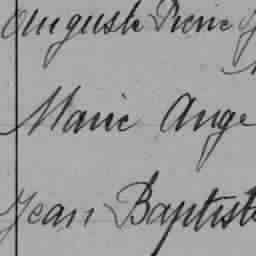 Auguste Pierre
Marie Ange
Jean Baptist